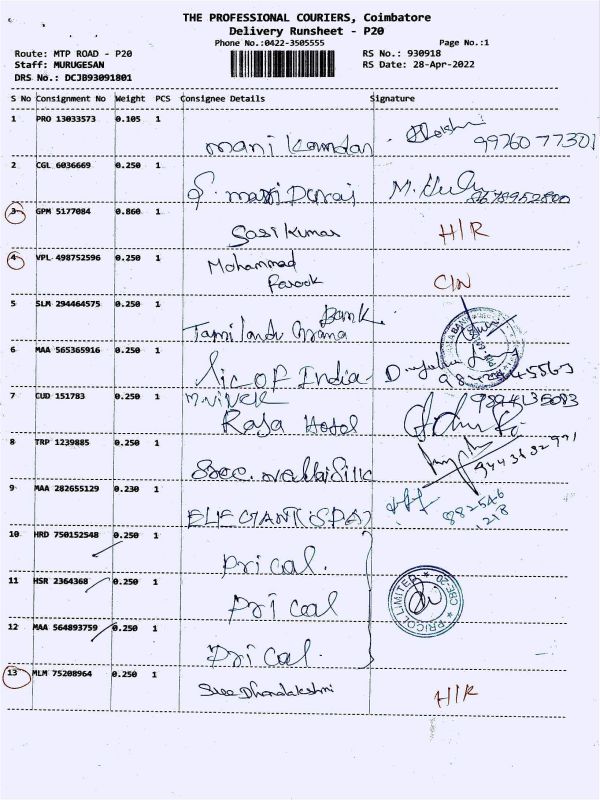 THE PROFESSIONAL COURIERS, Coimbatore
Delivery Runsheet - P20
Phone No.:0422-3505555
Page No.:1
Route: MTP ROAD - P20
RS No.: 930918
Staff: MURUGESAN
RS Date: 28-Apr-2022
DRS No.: DCJB93091801
S No Consignment No Weight PCS Consignee Details Signature
1 PRO 13033573 0.105 1
mani kandan 9976077301
2 CGL 6036669 0.250 1
3 GPM 5177084 0.860 1
Sasi Kumar H/R
4 VPL 498752596 0.250 1
Mohammad
Farook C/N
5 SLM 294464575 0.250 1
Bank
Tamilandu Grama
6 MAA 565365916 0.250 1
lic OF India
7 CUD 151783 0.250 1
m.vivek
Raja Hotel
8 TRP 1239885 0.250 1
9 MAA 282655129 0.230 1
ELEGANT (SPA)
882546
1218
10 HRD 750152548 0.250 1
Pricol.
11 HSR 2364368 0.250 1
Pricol
PRICOL LIMITED ★ CBE-20 ★
12 MAA 564893759 0.250 1
Pricol.
13 MLM 75208964 0.250 1
Sree Dhanalakshmi
H/R